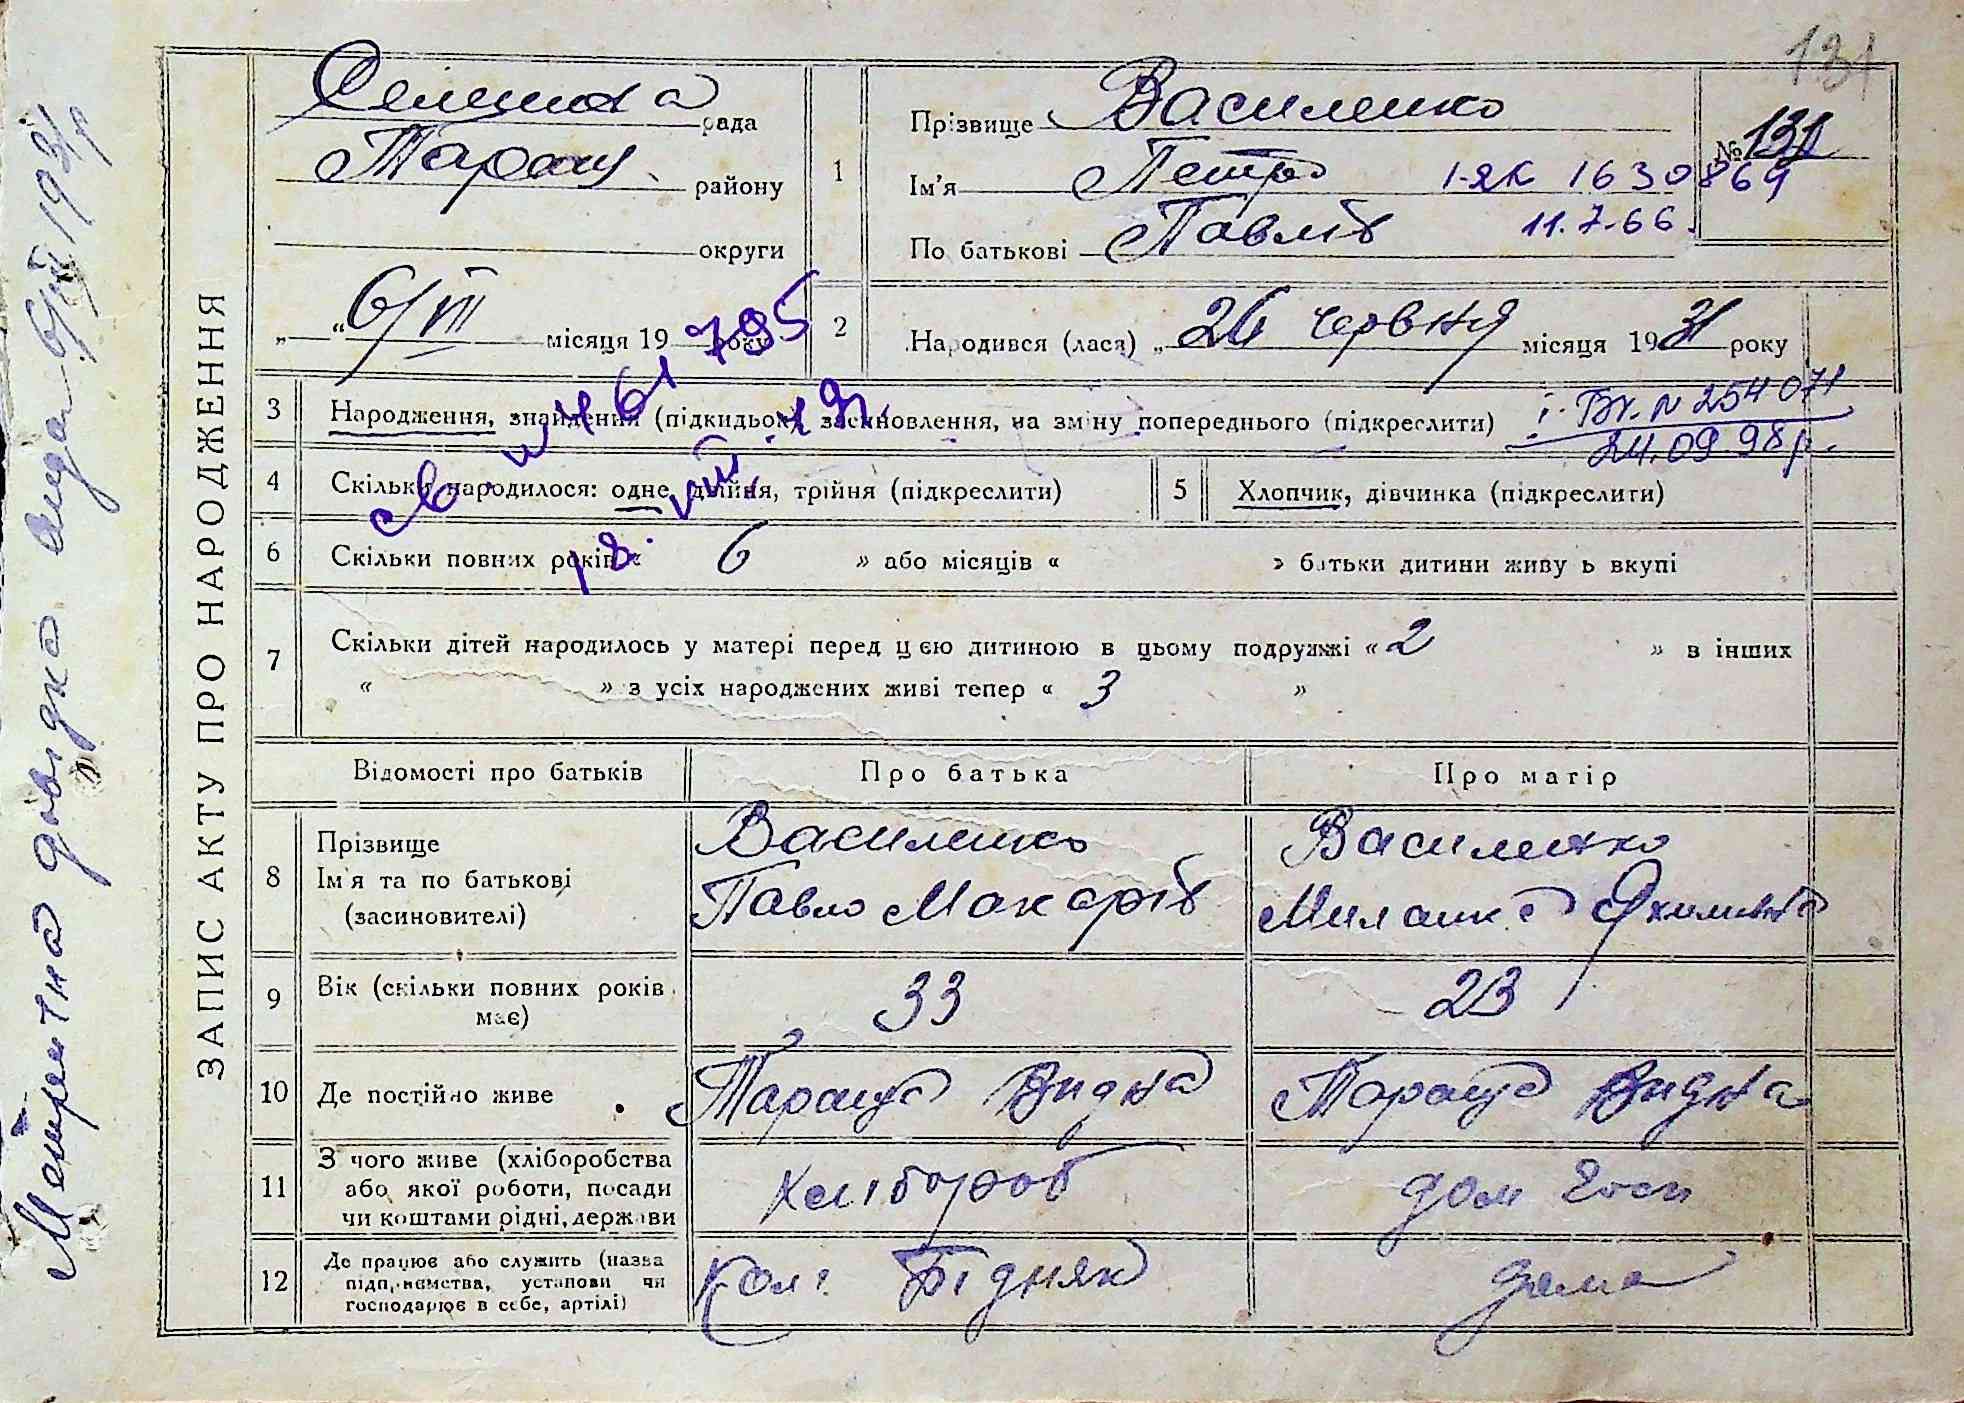 131
Селищна рада
Таращ району
округи
„ “ 6/VII місяця 19 року
1
Прізвище Василенко
Ім'я Петро
По батькові Павлів
№ 131
I-ЯК 1630869
11.7.66
2
Народився (лася) „ 26 червня місяця 1931 року
3
Народження, знайдення (підкидьок), засиновлення, на зміну попереднього (підкреслити)
і-БК. N 254071
24.09.98р.
4
Скільки народилося: одне, двійня, трійня (підкреслити)
5
Хлопчик, дівчинка (підкреслити)
6
Скільки повних років « 6 » або місяців « » батьки дитини живуть вкупі
7
Скільки дітей народилось у матері перед цією дитиною в цьому подружжі « 2 » в інших
« » з усіх народжених живі тепер « 3 »
ЗАПИС АКТУ ПРО НАРОДЖЕННЯ
Метрична довідка видана 6/VII 1931р
Відомості про батьків
Про батька
Про матір
8
Прізвище
Ім'я та по батькові
(засиновителі)
Василенко
Павло Макарів
Василенко
Миланка Якимівна
9
Вік (скільки повних років
має)
33
23
10
Де постійно живе
Тараща Видна
Тараща Видна
11
З чого живе (хліборобства
або якої роботи, посади
чи коштами рідні, держави
Хлібороб
дом госп
12
Де працює або служить (назва
підприємства, установи чи
господарює в себе, артілі)
Колг. Бідняк
дома